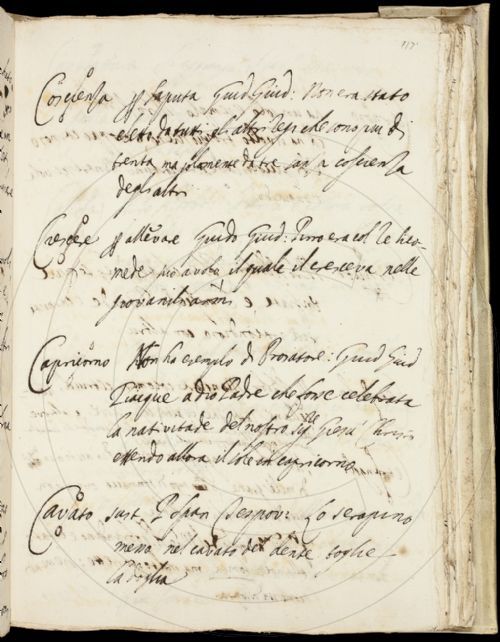 117
Coscienza ꝑ saputa Guid. Giud: Non era stato
eletto da tutti gl'altri Regi che sono piu di
trenta ma solamente da tre san a coscienza
degl'altri
Crescere ꝑ allevare Guido Giud:
mede suo avolo il quale il cresceva nelle
giovanili anni
Capricorno Non ha esemplo di Prosatore: Guid Giud
Piacque a Dio Padre che fosse celebrata
la natività de nostro Sig.re Giesù Christo
essendo allora il sole in capricorno
Cavato sust. Lo serapino
messo nel cavato del dente toglie
la doglia